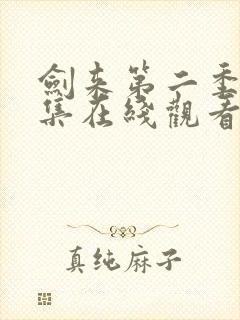 劍来第二季
集在綫觀看
真纯麻子